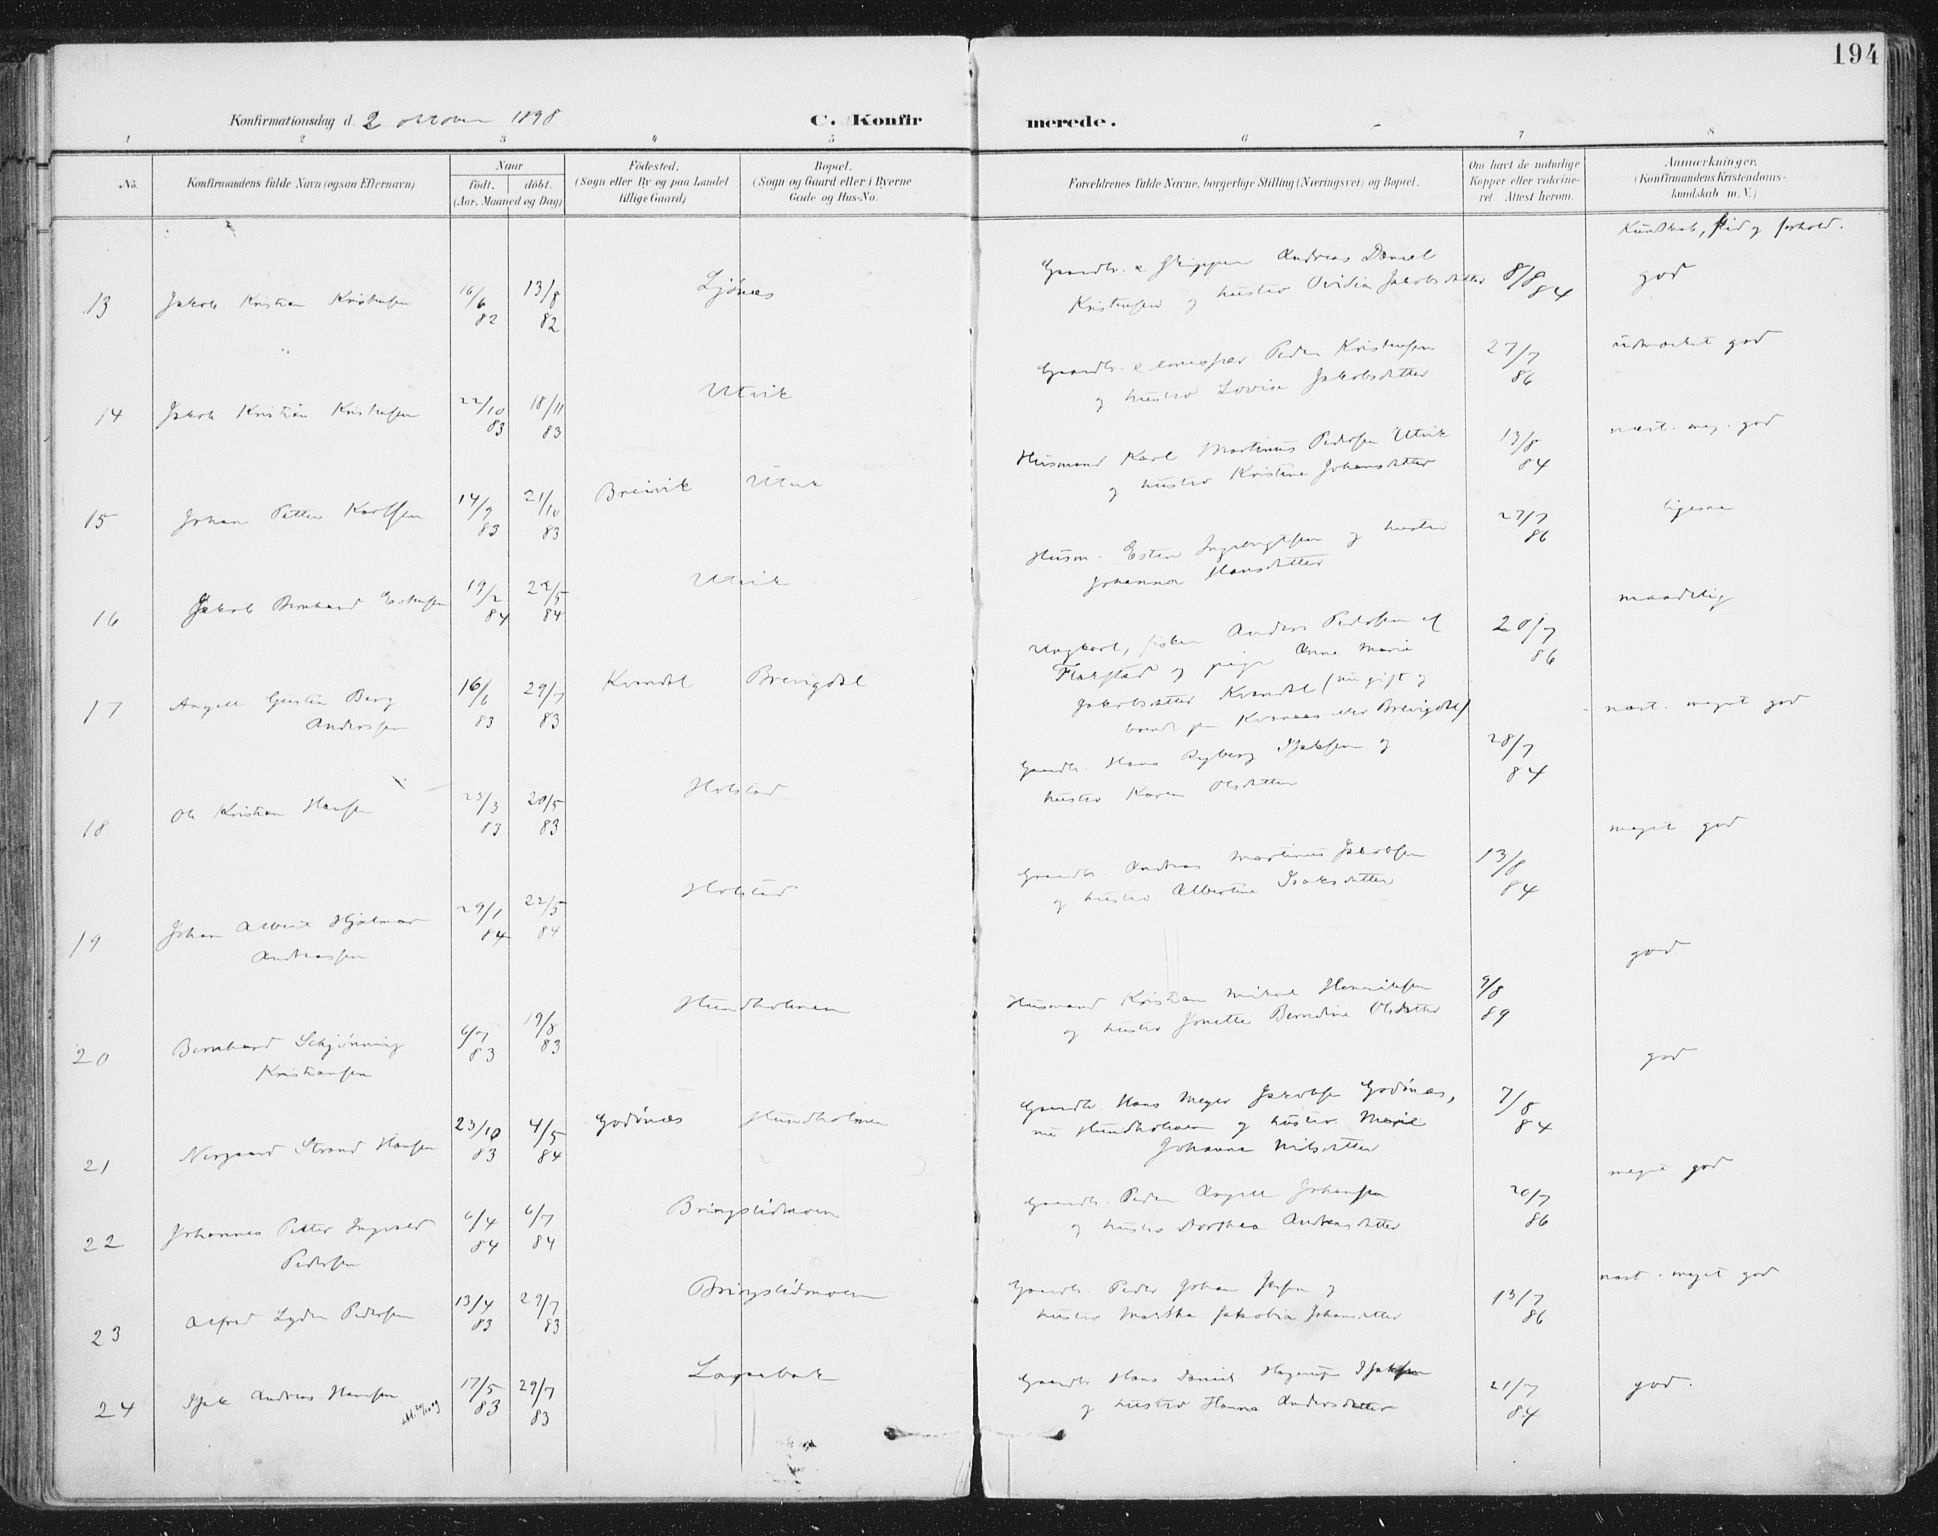 194
Konfirmationsdag d. 2 oktober 1898
C. Konfirmerede.
1 2 3 4 5 6 7 8
No.
Konfirmandens fulde Navn (ogsaa Efternavn)
Naar
födt. döbt.
(Aar, Maaned og Dag)
Födested.
(Sogn eller By og paa Landet
tillige Gaard)
Bopæl.
(Sogn og Gaard eller i Byerne
Gade og Hus-No.
Forældrenes fulde Navne, borgerlige Stilling (Næringsvei) og Bopæl.
Om havt de naturlige
Kopper eller vakcine-
ret Attest herom.
Anmærkninger.
(Konfirmandens Kristendoms-
kundskab m. V.)
Kundskab, flid og forhold.
13 Jakob Kristian Kristensen 16/6 82 13/8 82 Ljønes
Gaardbr. & Skipper Andreas Daniel
Kristensen og hustro Ovidia Jakobsdatter 8/8 84 god
14 Jakob Kristian Kristensen 22/10 83 18/11 83 Utvik
Gaardbr. Peder Kristensen
og hustro Lovise Jakobsdatter 27/7 86 udmærket god
15 Johan Petter Karlsen 14/9 83 21/10 83 Breivik Utvik
Husmand Karl Martinus Pedersen Utvik
og hustro Kristine Johansdatter 13/8 84 næst. meg. god
16 Jakob Bernhard Estensen 19/2 84 22/5 84 Utvik
Husm. Esten Ingebrigtsen og hustro
Johanna Hansdatter 27/7 86 ligesaa
17 Angell Gustav Berg
Anderssen 16/6 83 29/7 83 Kvandal Breivigdal
Ungkarl, fisker Anders Pedersen af
Flakstad og pige Anne Marie
Jakobsdatter Kvandal (nu gift og
boende paa Kvænaas eller Breivigdal) 20/7 86 maadelig
18 Ole Kristian Hansen 25/3 83 20/5 83 Holstad
Gaardbr. Hans Ryberg Isaksen og
hustro Karen Olsdatter 28/7 84 næst. meget god
19 Johan Albert Hjalmar
Andreassen 29/1 84 22/5 84 Holstad
Gaardbr. Andreas Martinus Jakobsen
og hustro Albertine Isaksdatter 13/8 84 meget god
20 Bernhard Schjønning
Kristiansen 6/7 83 19/8 83 Hundholmen
Husmand Kristian Mikal Henriksen
og hustro Jonette Berndine Olsdatter 9/8 89 god
21 Nergaard Strand Hansen 23/10 83 4/5 84 Godønes Hundholmen
Gaardbr. Hans Meyer Jakobsen Godønes,
nu Hundholmen og hustro Marie
Johanna Nilsdatter 7/8 84 god
22 Johannes Petter Ingvald
Pedersen 6/4 84 6/7 84 Bringslidmoen
Gaardbr. Peder Angell Johansen
og hustro Dorthea Andreasdatter 20/7 86 meget god
23 Alfred Lyder Pedersen 13/4 83 29/7 83 Bringslidmoen
Gaardbr. Peder Johan Jensen og
hustro Martha Jakobia Johansdatter 13/7 86 næst. meget god
24 Isak Andreas Hansen 17/5 83 29/7 83
Gaardbr. Hans Daniel Hagerup Isaksen
og hustro Hanna Andersdatter 21/7 84 god.